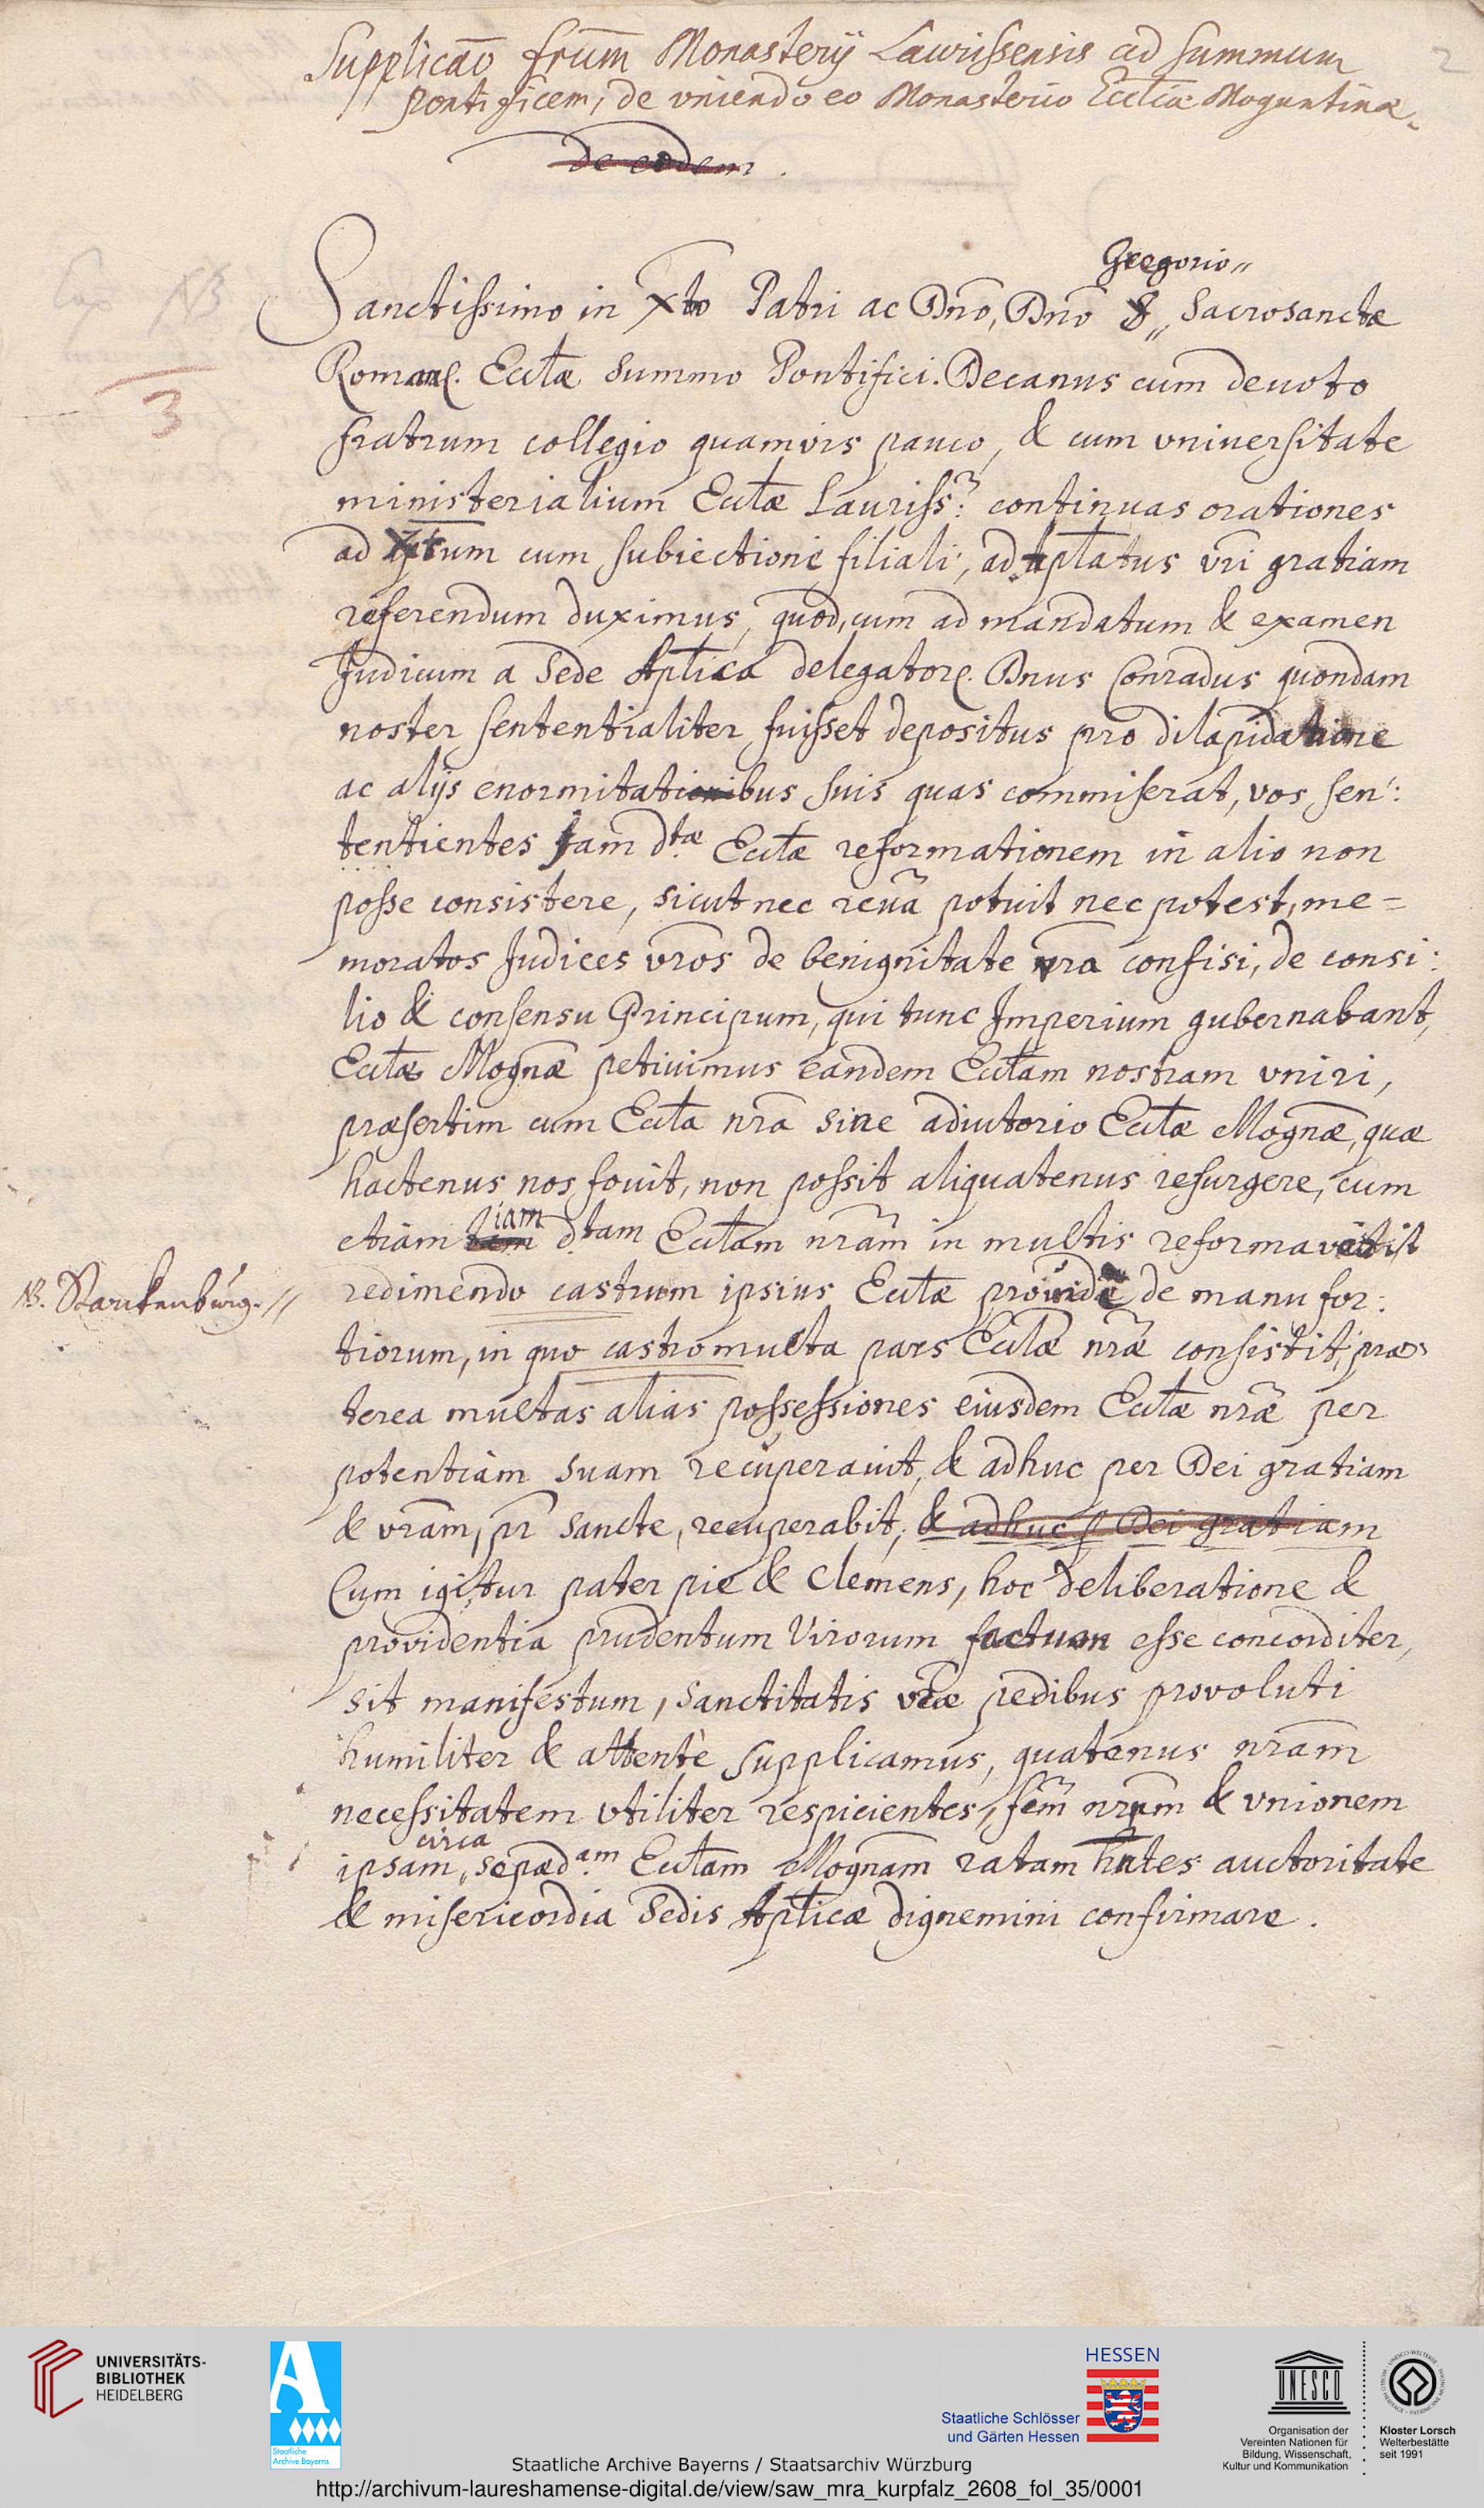 Supplicãõ frũm Monasterij Laurissensis ad summum
pontificem, de vniendo eo Monasterio Eccliæ Moguntinæ.
de eodem.
2
Gregorio"
Sanctissimo in Xto Patri ac Dnõ, Dnõ " Sacrosanctæ
Roman. Ecctæ summo Pontifici. Decanus cum deuoto
NB
3
fratrum collegio quamvis pauco, & cum vniuersitate
ministerialium Ecctæ Lauriss: continuas orationes
ad Xtum cum subiectione filiali, ad aplatus vri gratiam
referendum duximus, quod, cum ad mandatum & examen
Judicum a Sede Aplica delegator. Dnus Conradus quondam
noster sententialiter fuisset depositus pro dilapidatione
ac alijs enormitatibus suis quas commiserat, vos sen:
tentientes jam dtæ Ecctæ reformationem in alio non
posse consistere, sicut nec reuã potuit nec potest, me=
moratos Judices vros de benignitate vra confisi, de consi:
lio & consensu Principum, qui tunc Imperium gubernabant,
Ecctæ Mognæ petiuimus eandem Ecctam nostram vniri,
præsertim cum Eccta nra sine adiutorio Ecctæ Mognæ, quæ
hactenus nos fouit, non possit aliquatenus resurgere, cum
iam
etiam tam d.tam Ecctam nram in multis reformavit
NB. Starkenburg. //
redimendo castrum ipsius Ecctæ prouide de manu for:
tiorum, in quo castro multa pars Ecctæ nræ consistit, præ
terea multas alias possessiones eiusdem Ecctæ nræ per
potentiam suam recuperauit, & adhuc per Dei gratiam
& vram, pr sancte, recuperabit, & adhuc p Dei gratiam
Cum igitur pater pie & clemens, hoc deliberatione &
providentia prudentum Virorum factum esse concorditer,
sit manifestum, Sanctitatis vræ pedibus provoluti
humiliter & attentè supplicamus, quatenus nram
necessitatem vtiliter respicientes, sẽm nrum & vnionem
circa
ipsam, sepæd.am Ecctam Mognam ratam hntes auctoritate
& misericordia Sedis Aplicæ dignemini confirmare.
UNIVERSITÄTS-
BIBLIOTHEK
HEIDELBERG
Staatliche
Archive Bayerns
HESSEN
Staatliche Schlösser
und Gärten Hessen
UNESCO
Organisation der
Vereinten Nationen für
Bildung, Wissenschaft,
Kultur und Kommunikation
Kloster Lorsch
Welterbestätte
seit 1991
Staatliche Archive Bayerns / Staatsarchiv Würzburg
http://archivum-laureshamense-digital.de/view/saw_mra_kurpfalz_2608_fol_35/0001